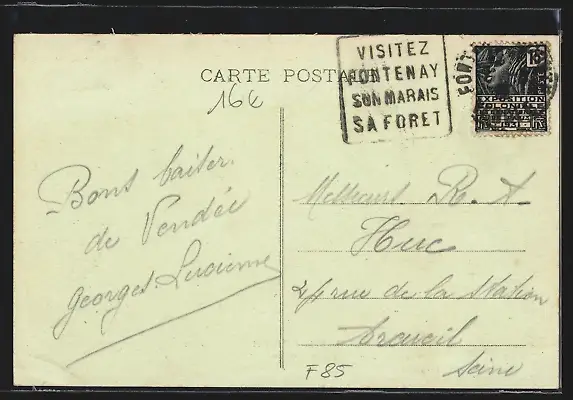 CARTE POSTA
16€
VISITEZ
FONTENAY
SON MARAIS
SA FORET
FONT
15c
EXPOSITION
COLONIALE
1931
Bons baiser
de Vendée
Georges Lucienne
Messieurs R. A
Huc
24 rue de la Station
Arcueil
Seine
F85